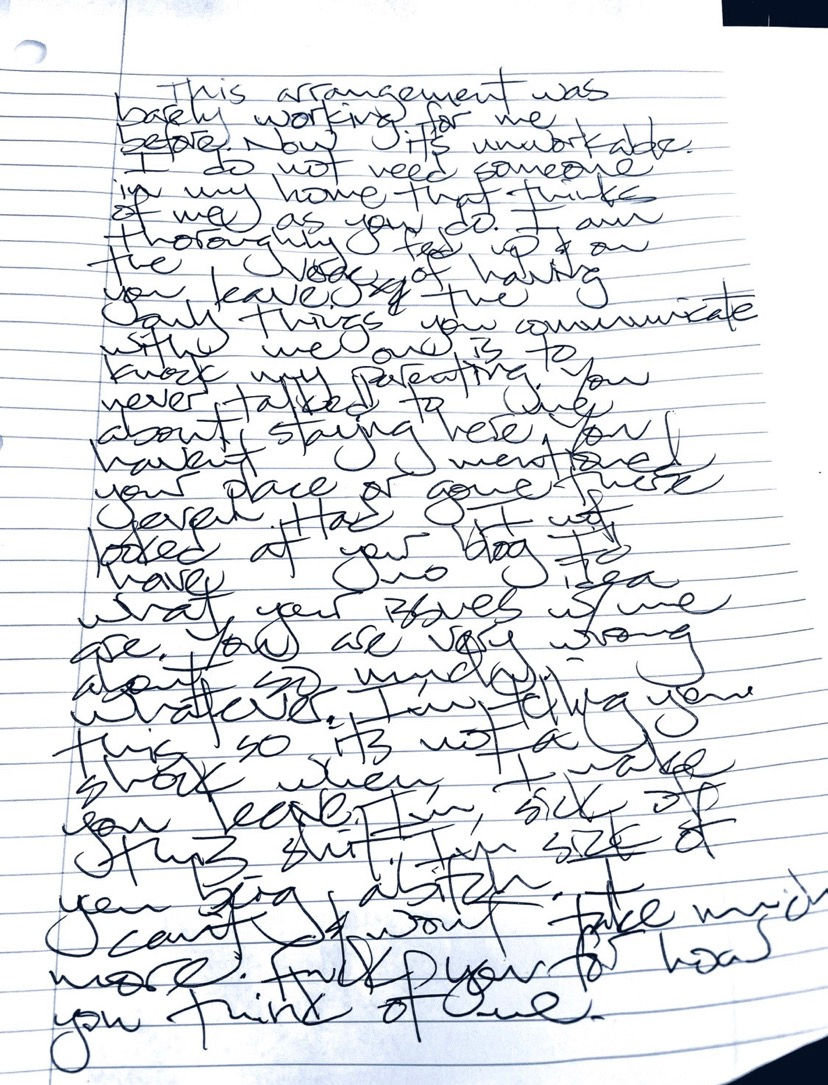 This arrangement was
barely working for me
before. Now it's unworkable.
I do not need someone
in my home that thinks
of me as you do. I am
thoroughly fed up & on
the verge of having
you leave. The
only things you communicate
with me on is to
knock my parenting. You
never talked to me
about staying here. You
havent mentioned
your place or gone there
even. Had I not
looked at your blog I'd
have no idea
what your issues w/ me
are. You are very wrong
about so much,
whatever. I'm telling you
this so it's not a
shock when I make
you leave. I'm sick of
this shit. I'm sick of
you being a bitch. I
can't & won't take much
more. Fuck you for how
you think of me.